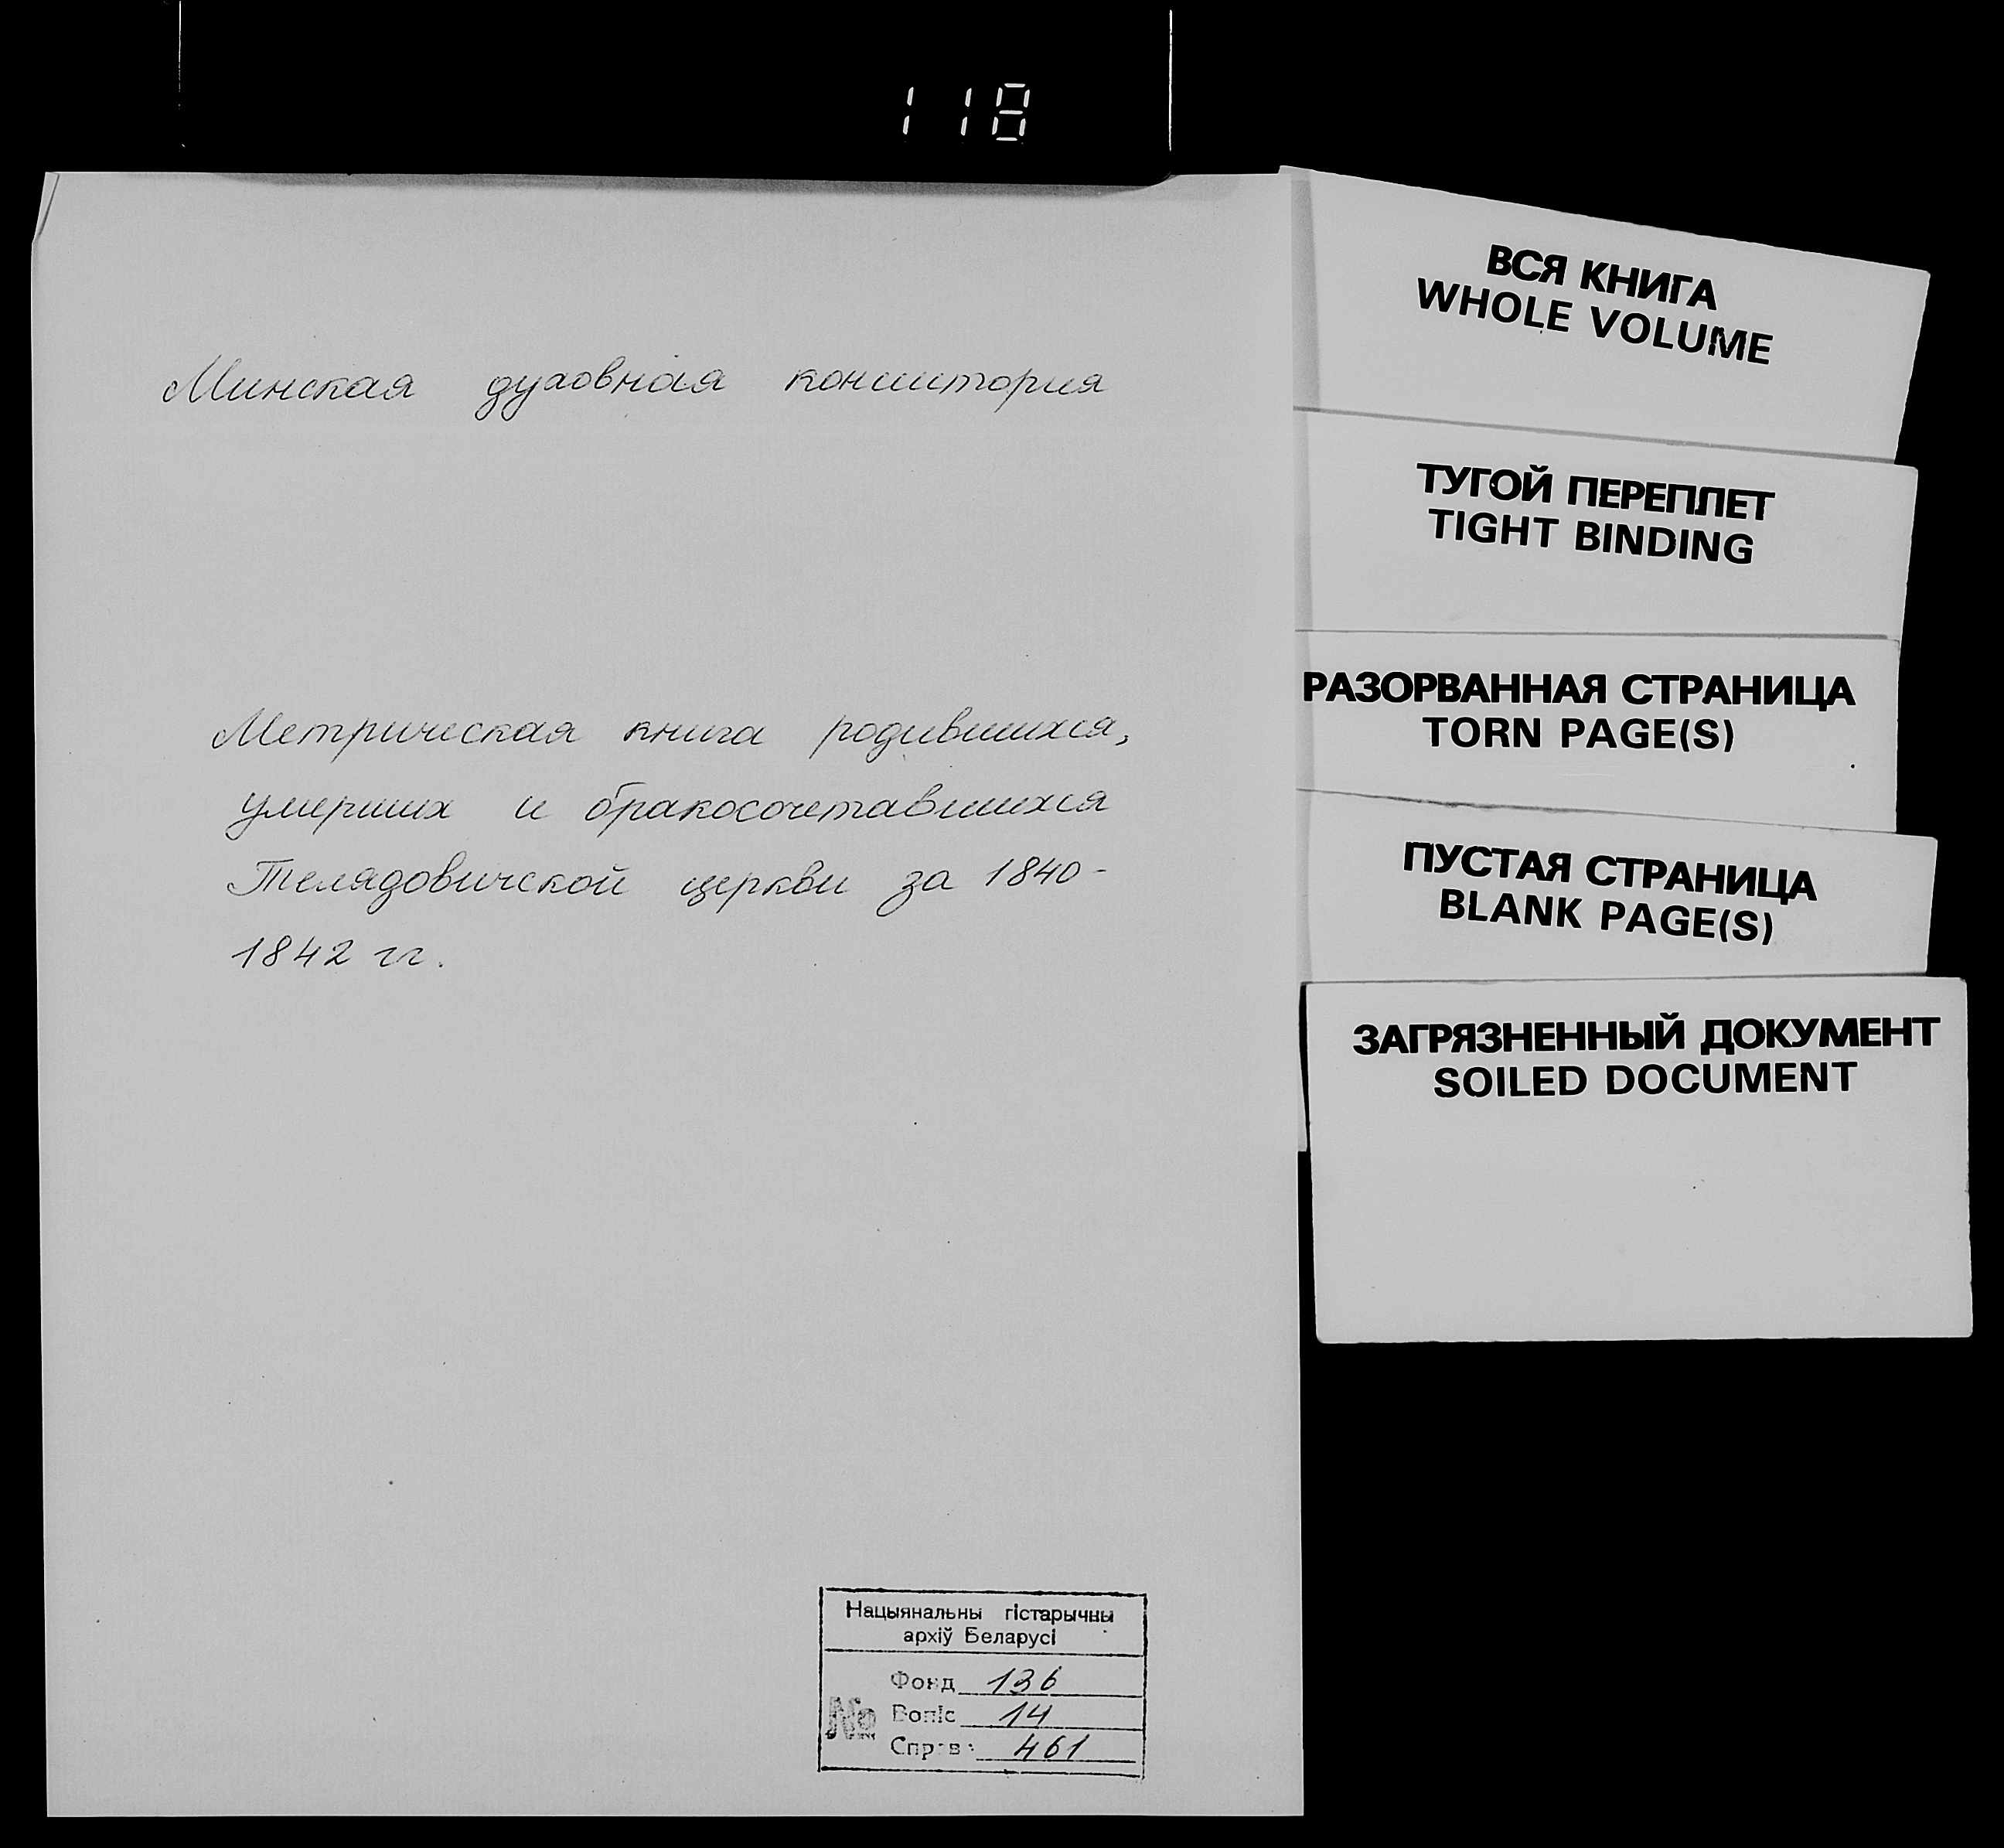 118
Минская духовная консистория
Метрическая книга родившихся,
умерших и бракосочетавшихся
Телядовичской церкви за 1840-
1842 гг.
Нацыянальны гістарычны
архіў Беларусі
Фонд 136
№ Вопіс 14
Справа 461
ВСЯ КНИГА
WHOLE VOLUME
ТУГОЙ ПЕРЕПЛЕТ
TIGHT BINDING
РАЗОРВАННАЯ СТРАНИЦА
TORN PAGE(S)
ПУСТАЯ СТРАНИЦА
BLANK PAGE(S)
ЗАГРЯЗНЕННЫЙ ДОКУМЕНТ
SOILED DOCUMENT